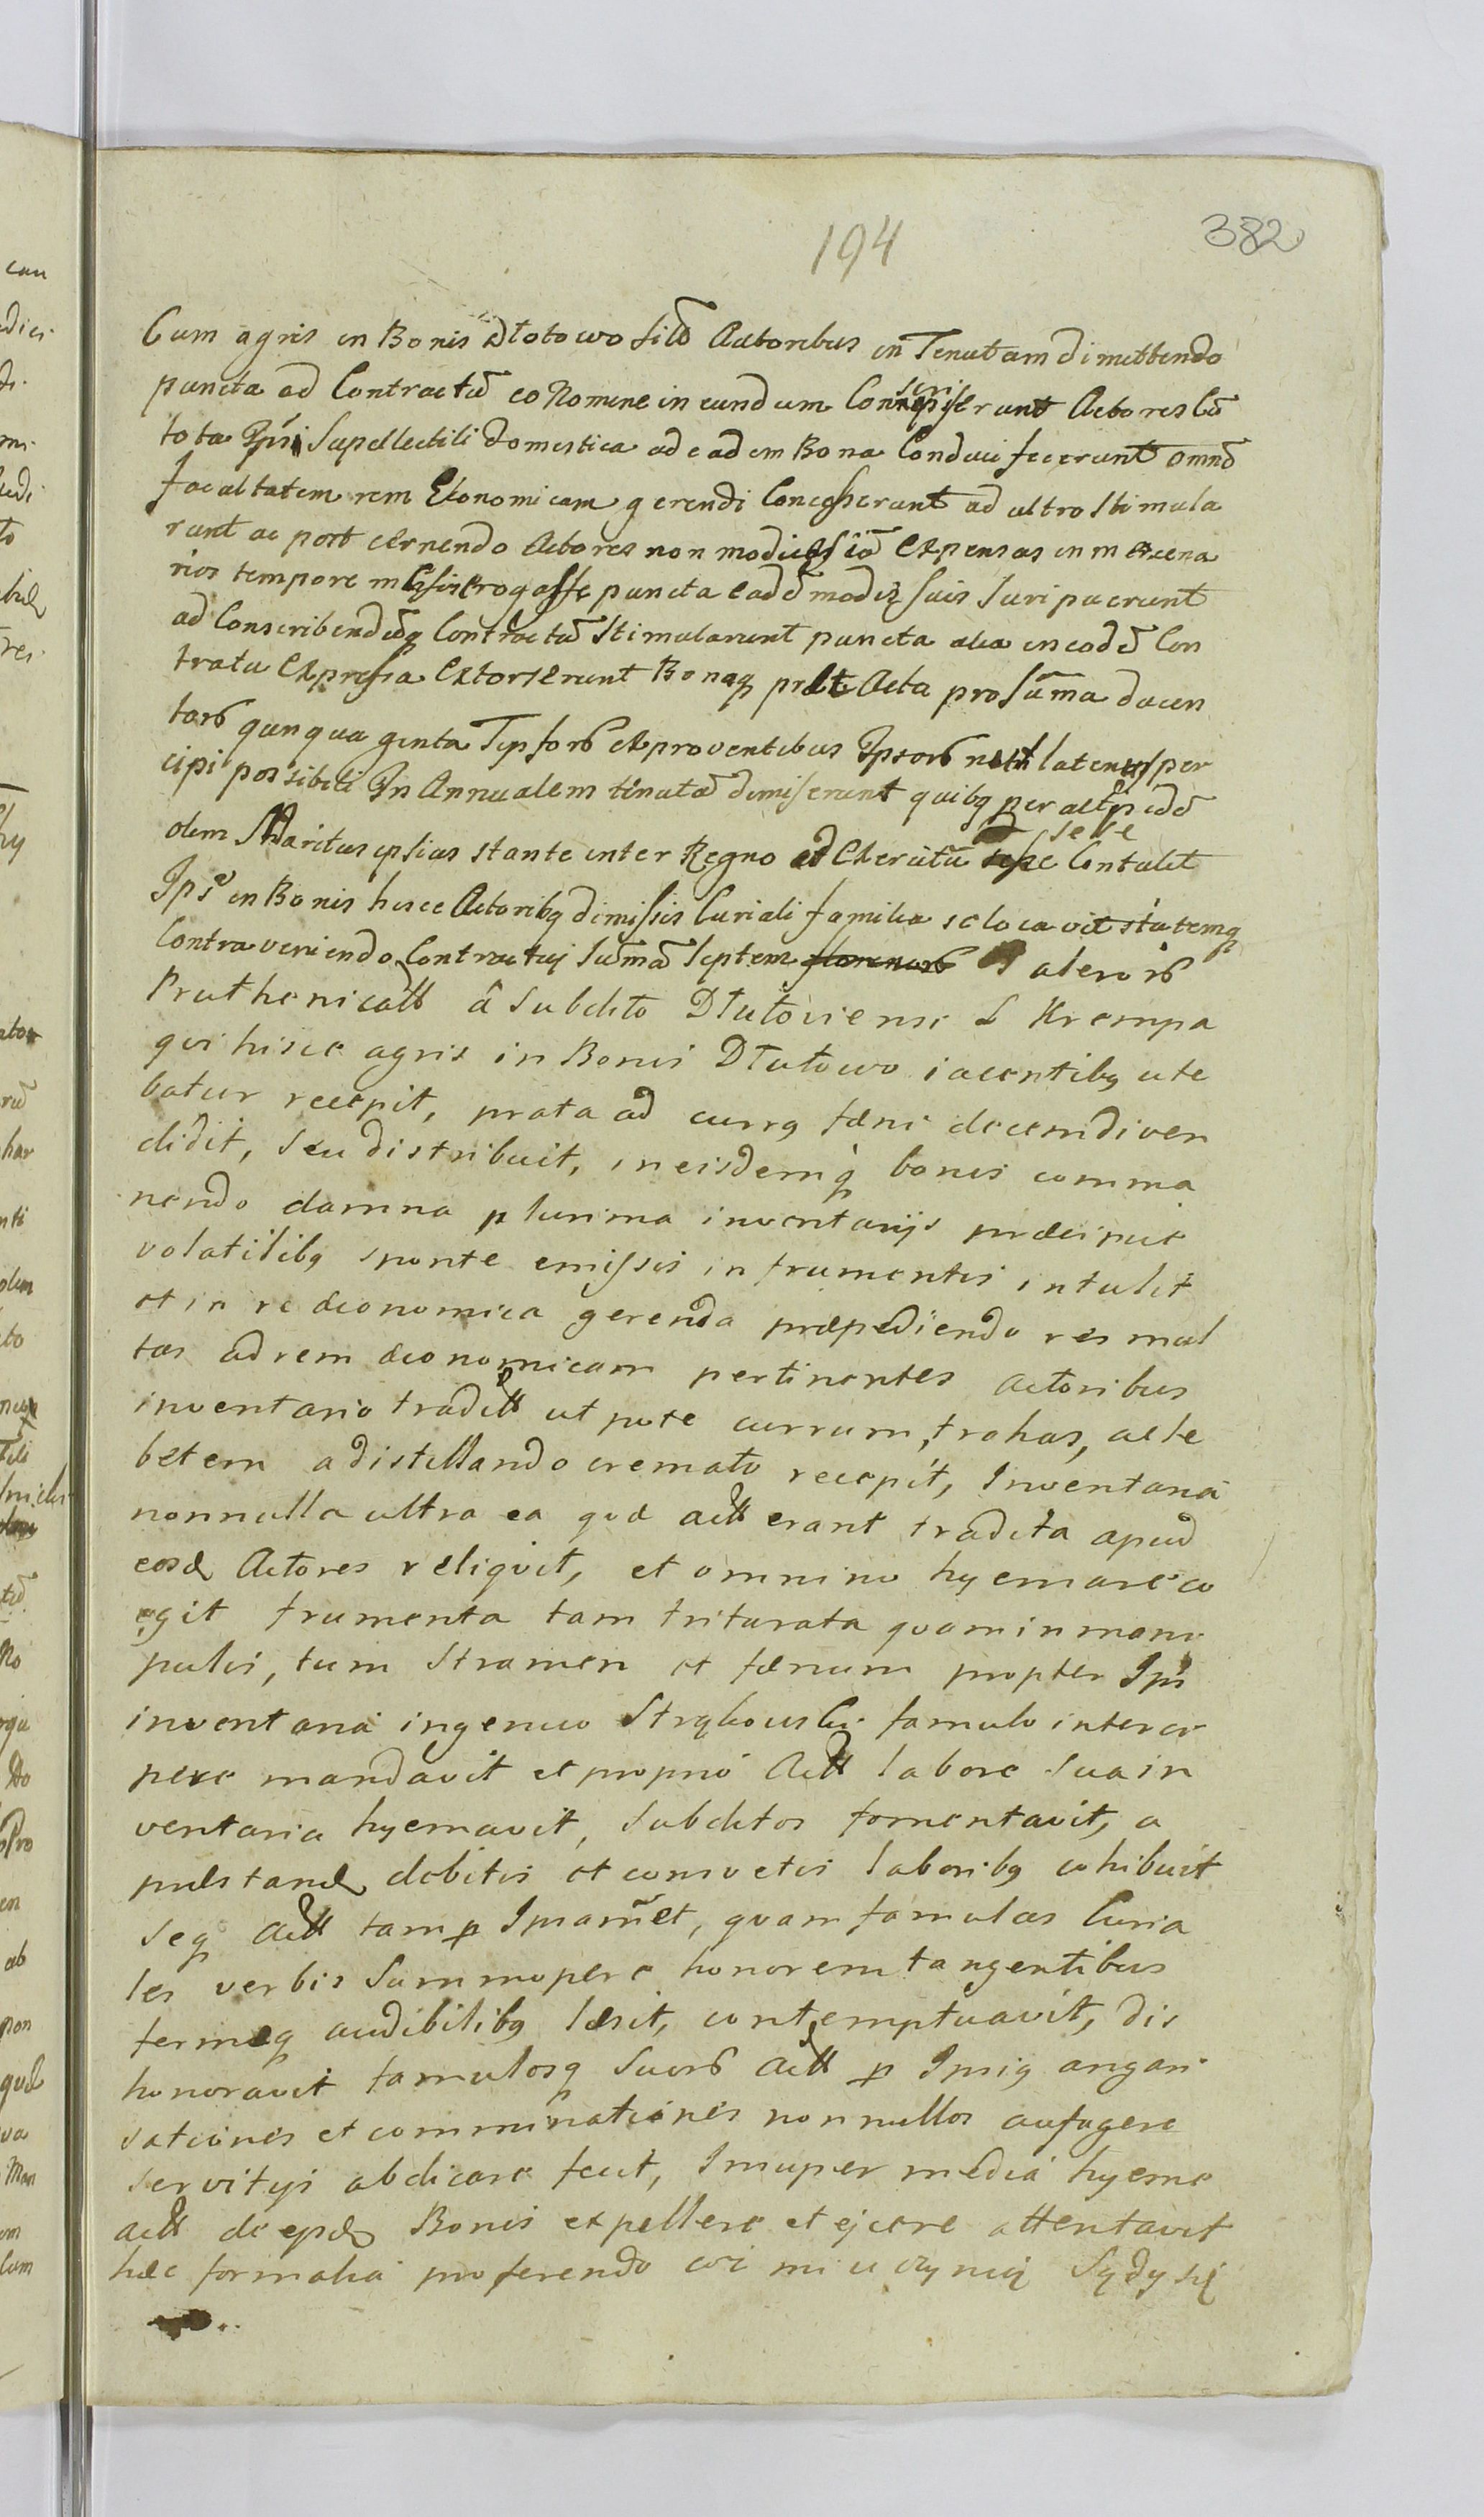 194
382
Cum agris in Bonis Dłotowo sitis Actoribus in Tenutam dimittendo
puncta ad Contractũ eo Nomine in eundum Conscripserunt Actores Cũ
tota Ipsi Supellectili Domestica ad eadem Bona Conduci fecerunt omnẽ
facultatem rem Ekonomicam gerendi Concesserunt ad ultro Stimula
runt ac post cernendo Actores non modicas iã Expensas in mercena
rios tempore messis Erogasse puncta eadẽ modis suis Suripuerunt
ad Conscribendũq Contractũ Stimularunt puncta alia in eodẽ Con
tratu Expressa Extorserunt Bonaq prætacta pro Sũma ducen
torũ quinquaginta Tipforũ ex proventibus Ipsorũ latenus per
cipi possibili In Annualem tenutã dimiserunt quibq peractis idẽ
olim Maritus ipsius stante inter Regno ad Exercitũ sese Contulit
Ipsẽ in Bonis hisce Actoribq dimissis Curiali familia se locavit statemq
Contraveniendo Contractui Sũmã Septem florenorũ Talerorũ
Pruthenicall â Subdito Dłutoviensi L Krempa
qui hisce agris in Bonis Dłutowo iacentibq ute
batur recepit, prata ad currq fæni decem diven
didit, seu distribuit, in eisdemq bonis comma
nendo damna plurima inventarijs præcipue
volatilibq sponte emissis in frumentis intulit
et in re œconomica gerenda præpediendo res mul
tas ad rem œconomicam pertinentes actoribus
inventario tradill ut pote currum, trahas, ale
betem a distillando cremato recepit, Inventaria
nonnulla ultra ea quæ actt erant tradita apud
eosd Actores reliquit, et omnino hyemare co
egit frumenta tam triturata quam in mani
pulis, tum stramen et fænum propter Ipsi
inventaria ingenuo Strąkowski famulo interci
pere mandavit et proprio Actt labore sua in
ventaria hyemavit, subditos fomentavit, a
præstand debitis et consuetis laboribq cohibuit
seq Actt tam p Ipsamet, quam famulas Curia
les verbis summopere honorem tangentibus
fermeq audibilibq læsit, contemptuavit, dis
honoravit famulosq suorũ actt p Ipsiq angari
sationes et comminationes nonnullos aufugere
servitys abdicare fecit, Insuper media hyeme
actt de ijsd Bonis expellere et ejicere attentavit
hæc formalia proferendo